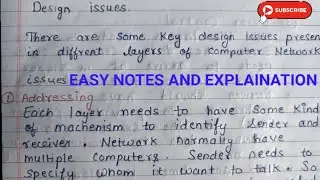 Design issues.
SUBSCRIBE
There are some key design issues present
in diffrent layers of computer Network
issues
EASY NOTES AND EXPLAINATION
① Addressing
Each layer needs to have some kind
of machenism to identify sender and
receiver. Network normally have
multiple computers. Sender needs to
specify whom it want to talk. So